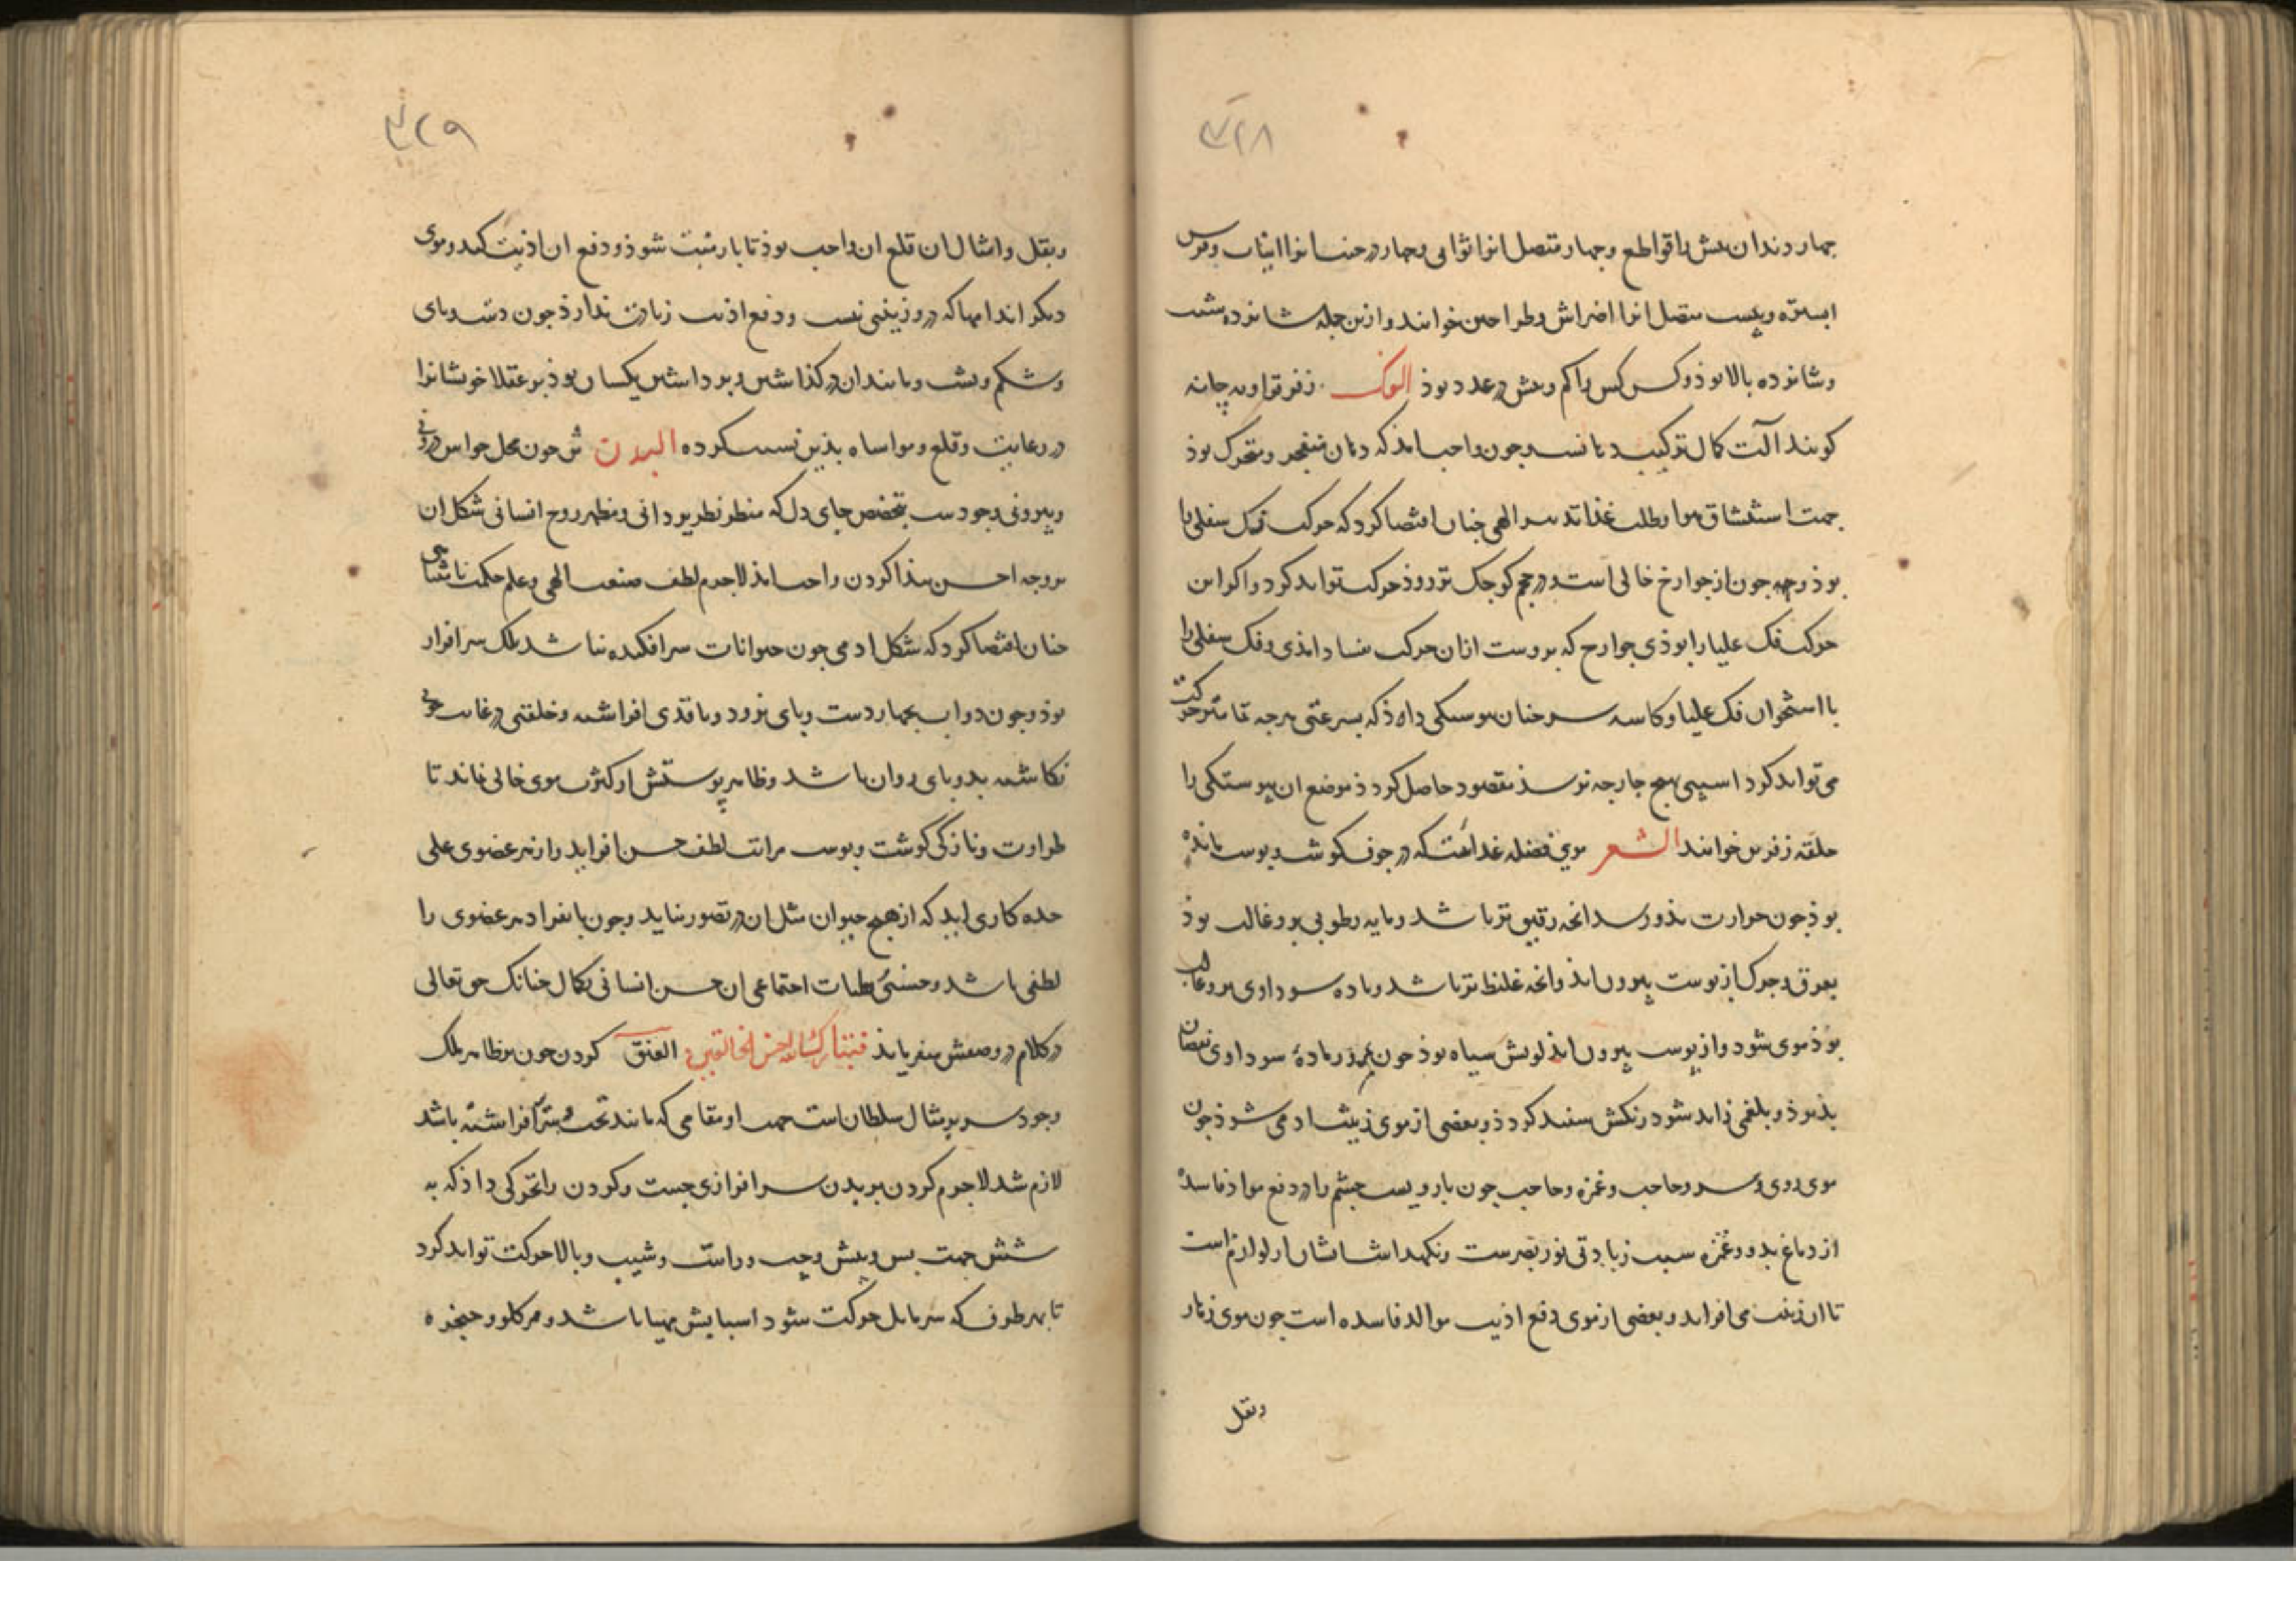 ۳۲۸
چهار دندان پیش را قواطع و چهار متصل انرا ثوانی و چهار در جنب انرا انیاب و قوس
و بیست متصل انرا اضراش و طواحین خوانند و ازین جمله شانزده بشیب
و شانزده بالا بوذ و کس کس را کم و بیش در عدد بوذ الفک زفر
کویند آلت کمال ترکیب چون واجب امذ که دهان منفجر و متحرک بوذ
جهت استنشاق هوا و طلب غذا تدبیر الهی چنان اقتضا کرد که حرکت فک سفلی را
بوذ و چه چون از جوارح خالی است و در حجم کوچک تر زوذ حرکت تواند کرد و اکر این
حرکت فک علیا را بوذی جوارح که بروست ازان حرکت فساد امذی و فک سفلی را
با استخوان فک علیا و کاسه سر چنان پیوستکی داد که بسرعتی هرچه تمامتر حرکت
می تواند کرد اسیبی بهیچ جارحه نرسذ مقصود حاصل کردذ موضع ان پیوستکی را
حلقه زفرین خوانند الشعر موی فضله غذاست که در جوف کوشت و پوست مانده
بوذ چون حرارت بذو رسد انچه رقیق تر باشد و مایه رطوبی برو غالب بوذ
بعرق و چرک از پوست بیرون ایذ و انچه غلیظ تر باشد و ماده سوداوی برو غالب
بوذ موی شود و از پوست بیرون ایذ لونش سیاه بوذ چون ماده سوداوی نقصان
بذیرذ و بلغمی زاید شود رنکش سفید کردذ و بعضی از موی زینت را می شوذ چون
موی روی و سر و حاجب و غمزه و حاجب چون بارویست چشم را در دفع مواد فاسد
از دماغ بدو و غمزه سبب زیادتی نور بصرست و نکهداشتشان از لوازم است
تا ان زینت می افزاید و بعضی از موی دفع اذیت موالد فاسده است چون موی زهار
وبقل
۳۲۹
وبقل و امثال ان قلع ان واجب بوذ تا باز منبت شوذ و دفع ان اذیت کند و موی
دیکر اندامها که درو زینتی نیست و دفع اذیت زیادت ندارذ چون دست و پای
و شکم و پشت و مانند ان در کذاشتن و برداشتن یکسان بوذ عقلا خوشانرا
در رعایت و قلع و مواساه بذین نسبت کرده البدن تن چون محل حواس درونی
و بیرونی وجودست بتخصص جای دل که منظر نظر یزدانی و مظهر روح انسانی شکل ان
بر وجه احسن پیذا کردن واجب امذ لاجرم لطف صنعت الهی و علم حکمت نامتناهی
چنان اقتضا کرد که شکل ادمی چون حیوانات سرافکنده نباشد بلک سرافراز
بوذ و چون دواب بچهار دست و پای نرود و با قدی افراشته و خلقتی در غایت خوبی
نکاشته بدو پای روان باشد و ظاهر پوستش از کثرت موی خالی ماند تا
طراوت و نازکی کوشت و پوست مراتب لطف حسن افزاید و از هر عضوی علی
حده کاری اید که از هیچ حیوان مثل ان در تصور نیاید و چون بانفراد هر عضوی را
لطفی باشد و حسنی هیات اجتماعی ان حسن انسانی بکمال چنانک حق تعالی
در کلام در وصفش میفرمایذ فتبارک الله احسن الخالقین العنق کردن چون بر ظاهر ملک
وجود سر بر مثال سلطان است جهت او مقامی که مانند تخت افراشته باشد
لازم شد لاجرم کردن بر بدن سرافرازی جست و کردن را تحرکی داذ که به
شش جهت پس و پیش و چپ و راست و شیب و بالا حرکت تواند کرد
تا بهر طرف که سر مایل حرکت شود اسبابش مهیا باشد و مر کلو و حنجره